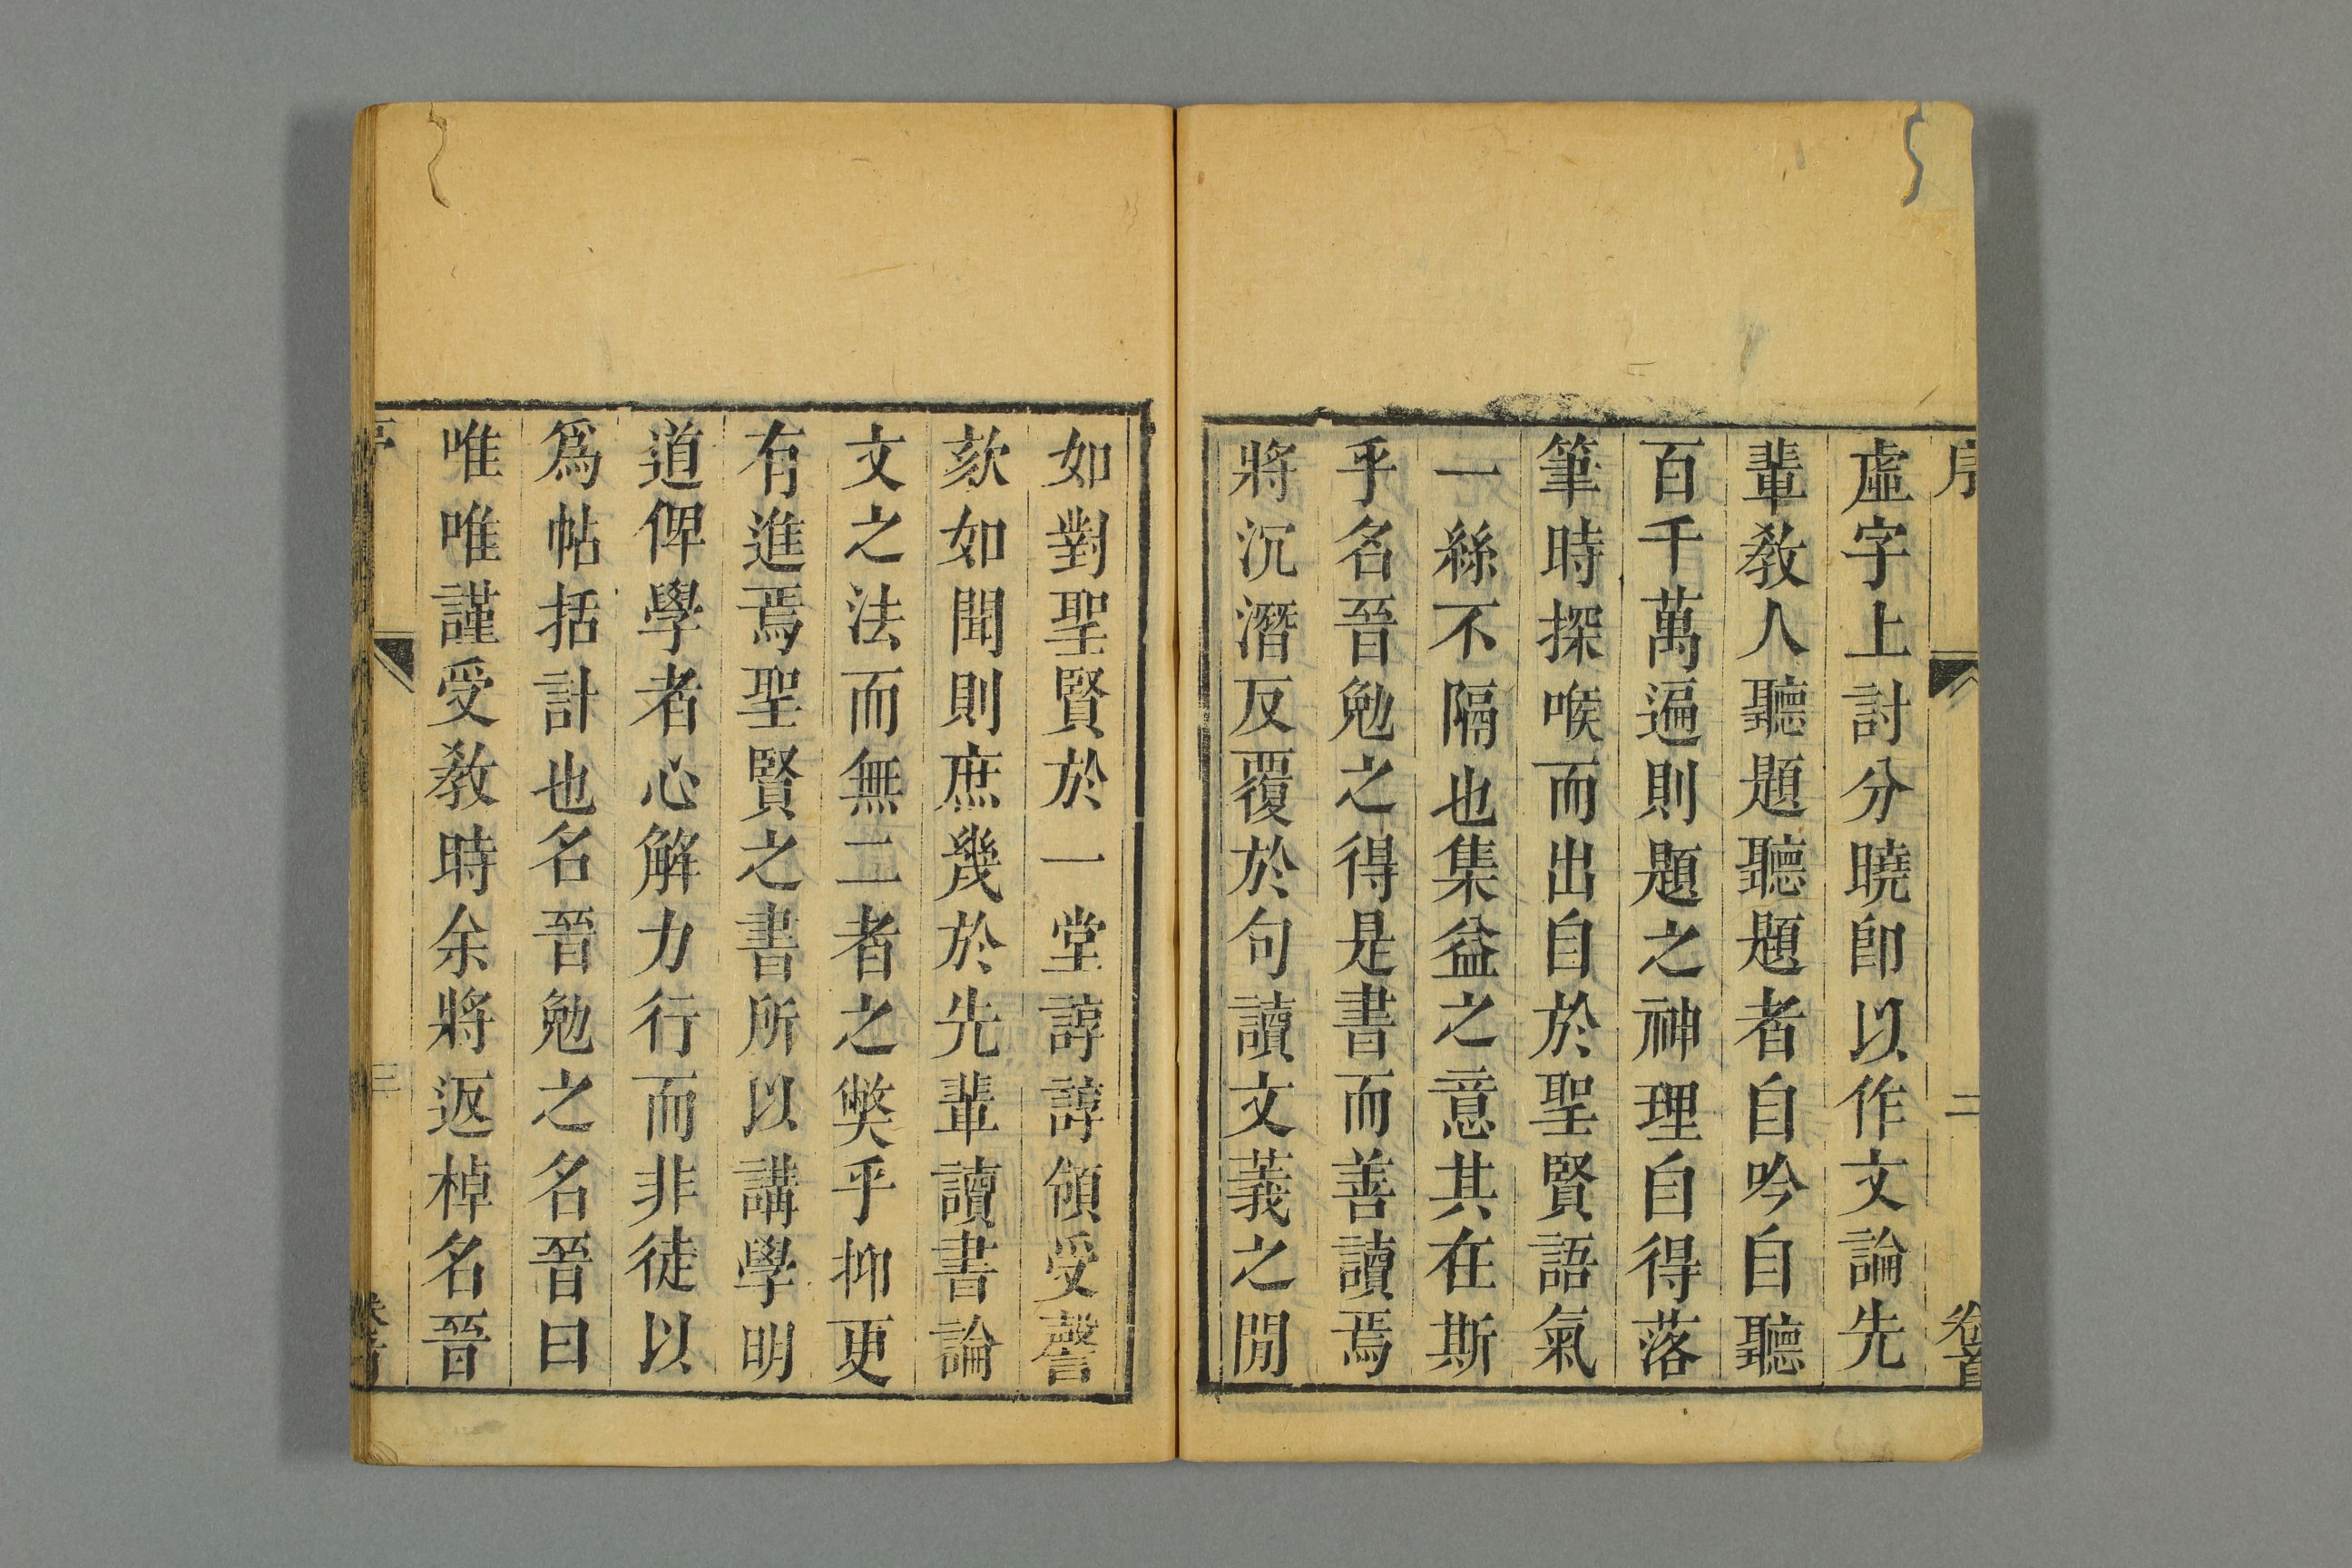 序
二
卷首
虛字上討分曉卽以作文論先
輩教人聽題聽題者自吟自聽
百千萬遍則題之神理自得落
筆時探喉而出自於聖賢語氣
一絲不隔也集益之意其在斯
乎名晉勉之得是書而善讀焉
將沉潛反覆於句讀文義之閒
如對聖賢於一堂諄諄領受謦
欬如聞則庶幾於先輩讀書論
文之法而無二者之獘乎抑更
有進焉聖賢之書所以講學明
道俾學者心解力行而非徒以
爲帖括計也名晉勉之名晉曰
唯唯謹受教時余將返棹名晉
序
三
卷首